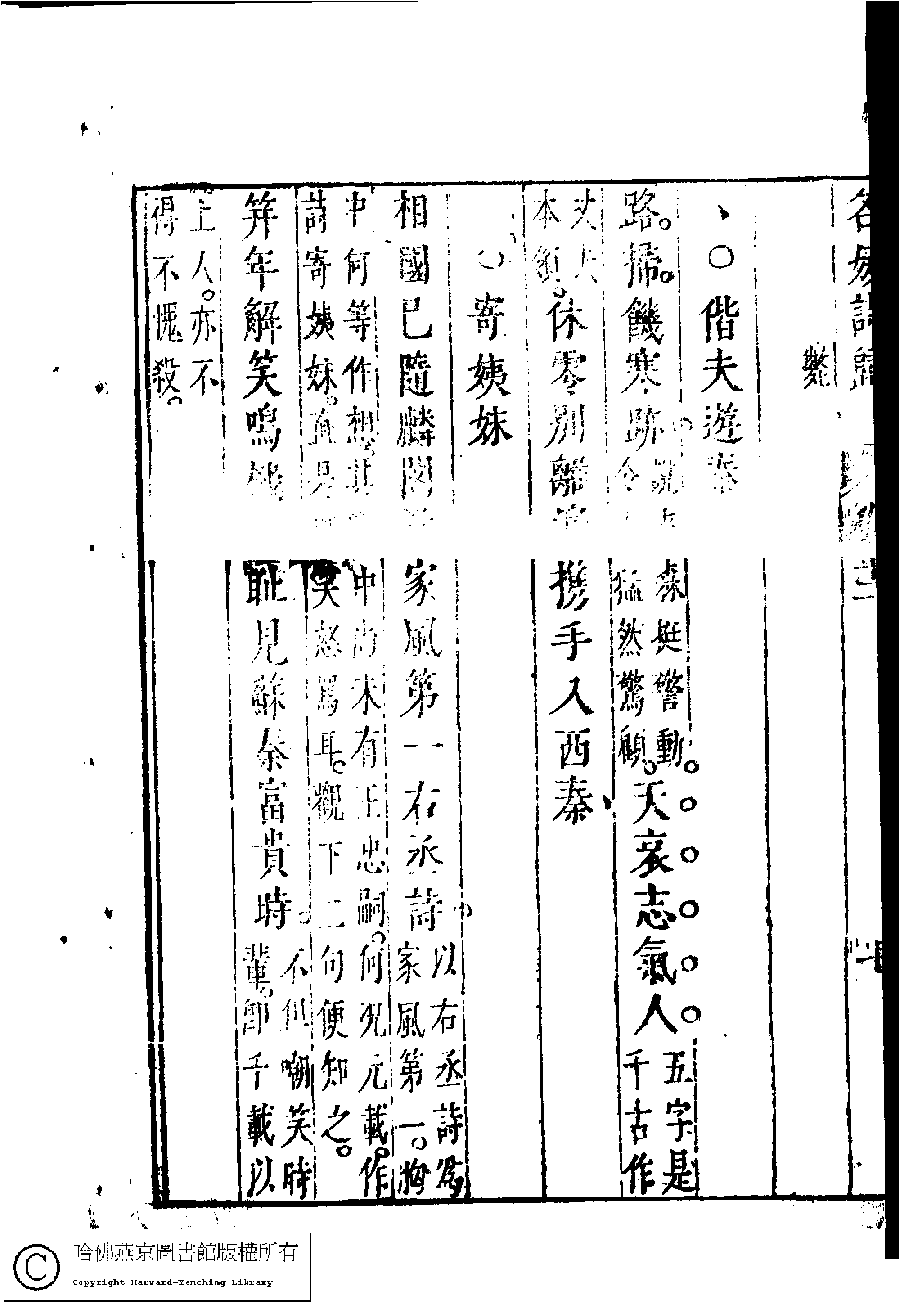 名媛詩歸
斃
、○偕夫遊秦
路。掃。饑寒跡。
森挺警動。
令猛然驚顧。
天哀志氣人。
五字是
千古作
丈夫
本領。
休零別離 携手入西秦
○寄姨妹
相國已隨麟閣 家風第一右丞詩。
以右丞詩為
家風第一。胸
中何等作想。其 中尚未有王忠嗣。何況元載。作
詩寄姨妹。直是 笑怒罵耳。觀下二句便知之。
笄年解笑鳴機 恥見蘇秦富貴時。
不但嘲笑時
輩。即千載以
上人。亦不
得不愧殺。
哈佛燕京圖書館版權所有
Copyright Harvard-Yenching Library